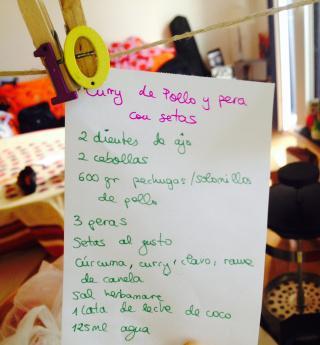 Curry de Pollo y pera
con setas
2 dientes de ajo
2 cebollas
600 gr pechugas/solomillos
de pollo
3 peras
Setas al gusto
Cúrcuma, curry, clavo, rama
de canela
Sal herbamare
1 lata de leche de coco
125ml agua